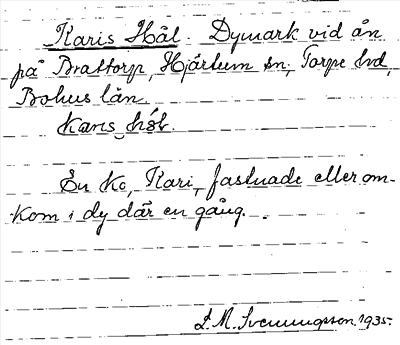 Karis Hål. Dymark vid ån
på Brattorp, Hjärtum sn, Torpe hd,
Bohus län.
En ko, Kari, fastnade eller om-
kom i dy där en gång.
S. M. Svenungsson. 1935.